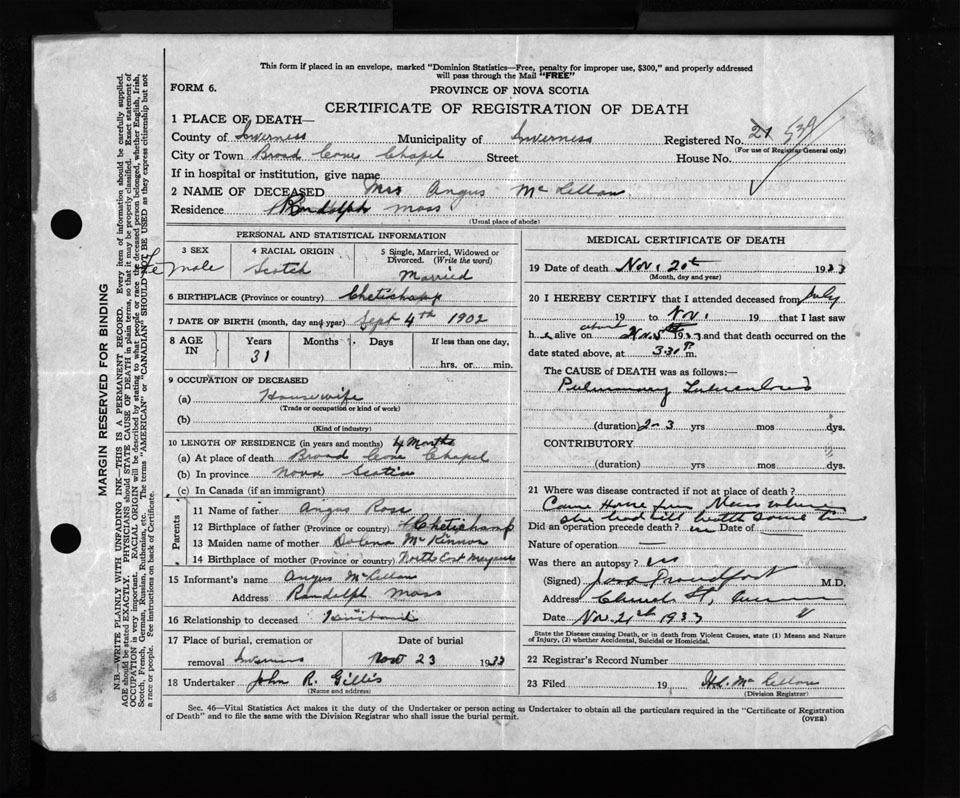 This form if placed in an envelope, marked "Dominion Statistics—Free, penalty for improper use, $300," and properly addressed
will pass through the Mail "FREE"
FORM 6.
PROVINCE OF NOVA SCOTIA
CERTIFICATE OF REGISTRATION OF DEATH
1 PLACE OF DEATH—
County of Inverness Municipality of Inverness Registered No. 21 539
(For use of Registrar General only)
City or Town Broad Cove Chapel Street House No.
If in hospital or institution, give name
2 NAME OF DECEASED Mrs Angus McLellan
Residence Randolph Mass
(Usual place of abode)
PERSONAL AND STATISTICAL INFORMATION
3 SEX
Female
4 RACIAL ORIGIN
Scotch
5 Single, Married, Widowed or
Divorced. (Write the word)
Married
6 BIRTHPLACE (Province or country) Chetichamp
7 DATE OF BIRTH (month, day and year) Sept 4th 1902
8 AGE
IN
Years
31
Months
Days
If less than one day,
hrs. or min.
9 OCCUPATION OF DECEASED
(a) Housewife
(Trade or occupation or kind of work)
(b)
(Kind of industry)
10 LENGTH OF RESIDENCE (in years and months) 4 Months
(a) At place of death Broad Cove Chapel
(b) In province Nova Scotia
(c) In Canada (if an immigrant)
Parents
11 Name of father Angus Ross
12 Birthplace of father (Province or country) Chetichamp
13 Maiden name of mother Dolena McKinnon
14 Birthplace of mother (Province or country) North East
15 Informant's name Angus McLellan
Address Randolph Mass
16 Relationship to deceased Husband
17 Place of burial, cremation or
removal Inverness
Date of burial
Nov 23 1933
18 Undertaker John R. Gillis
(Name and address)
MEDICAL CERTIFICATE OF DEATH
19 Date of death Nov. 20th 1933
(Month, day and year)
20 I HEREBY CERTIFY that I attended deceased from July
19 to Nov. 19 that I last saw
h er alive on about 1933 and that death occurred on the
date stated above, at 3:30 m.
The CAUSE of DEATH was as follows:—
Pulmonary Tuberculosis
(duration) 2-3 yrs mos dys.
CONTRIBUTORY
(duration) yrs mos dys.
21 Where was disease contracted if not at place of death?
Came Home from Mass where
she had ill health some time
Did an operation precede death? no Date of
Nature of operation —
Was there an autopsy? no
(Signed) Proudfoot M.D.
Address Church St, Inverness
Date Nov. 21st 1933
State the Disease causing Death, or in Death from Violent Causes, state (1) Means and Nature
of Injury, (2) whether Accidental, Suicidal or Homicidal.
22 Registrar's Record Number
23 Filed 19 McLellan
(Division Registrar)
Sec. 46—Vital Statistics Act makes it the duty of the Undertaker or person acting as Undertaker to obtain all the particulars required in the "Certificate of Registration
of Death" and to file the same with the Division Registrar who shall issue the burial permit.
(OVER)
MARGIN RESERVED FOR BINDING
N.B.—WRITE PLAINLY WITH UNFADING INK—THIS IS A PERMANENT RECORD. Every item of information should be carefully supplied.
AGE should be stated EXACTLY. PHYSICIANS should STATE CAUSE OF DEATH in plain terms, so that it may be properly classified. Exact statement of
OCCUPATION is very important. RACIAL ORIGIN will be described by stating to what people or race the deceased person belonged, whether English, Irish,
Scotch, French, German, Russian, Ruthenian, etc. The terms "AMERICAN" or "CANADIAN" SHOULD NOT BE USED as they express citizenship but not
a race or people. See instructions on back of Certificate.